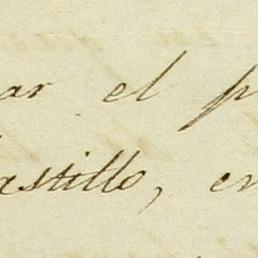 ar el p
astillo, en